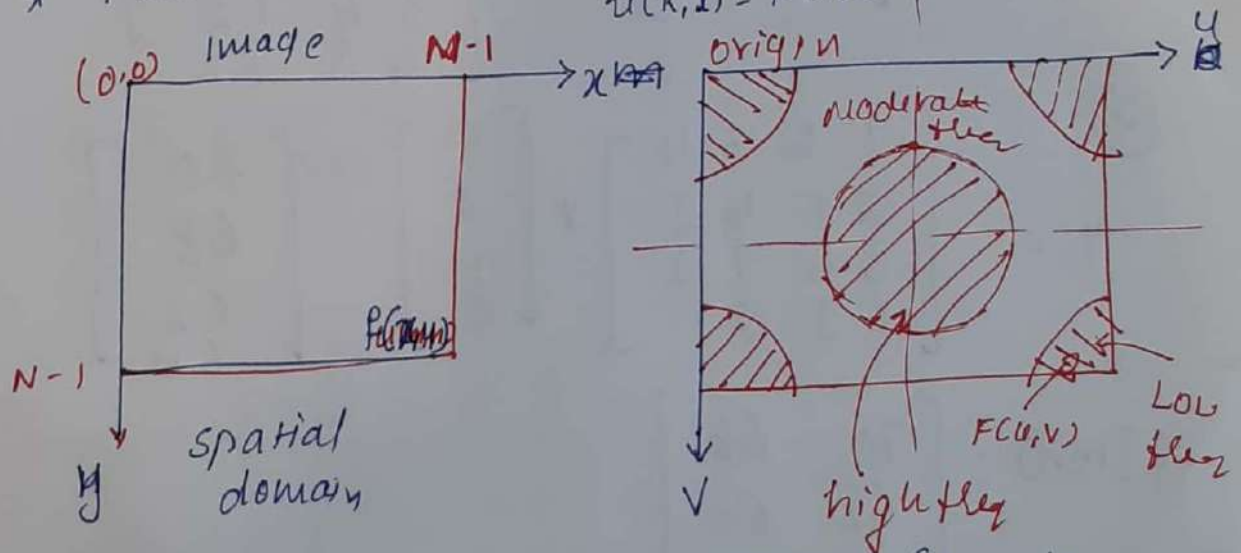 image
(0,0)
N-1
x
N-1
y
spatial
domain
origin
u
moderate
freq
F(u,v)
Low
freq
V
high freq